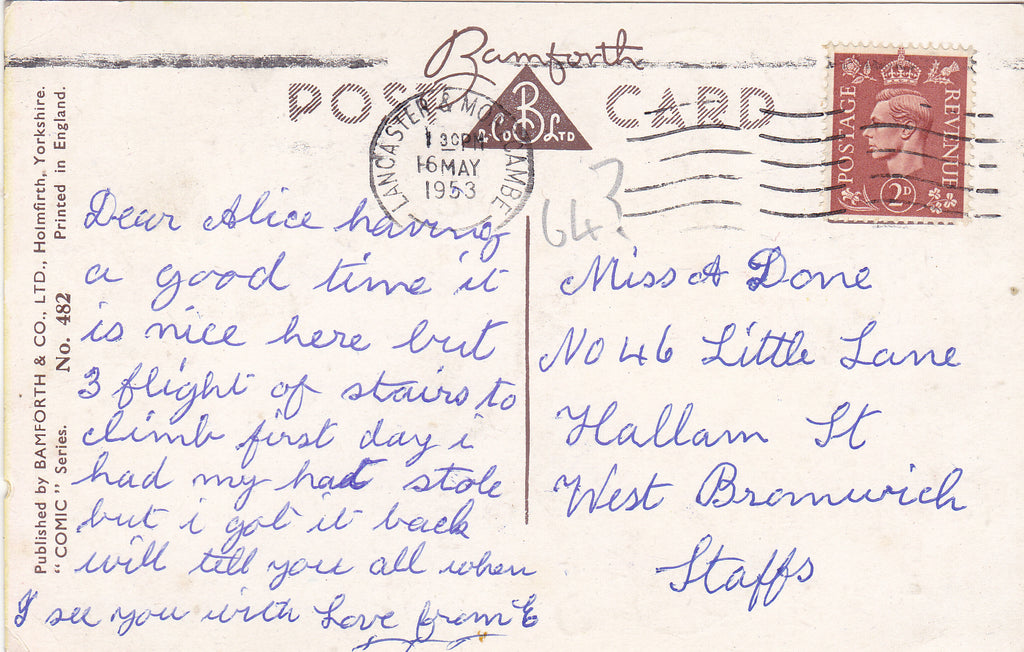 Bamforth
POST CARD
B
& Co LTD
LANCASTER & MORECAMBE
1 30PM
16 MAY
1953
POSTAGE REVENUE
2D
64?
Published by BAMFORTH & CO., LTD., Holmfirth, Yorkshire.
"COMIC" Series. No. 482 Printed in England.
Dear Alice having
a good time it
is nice here but
3 flight of stairs to
climb first day i
had my hat stole
but i got it back
will tell you all when
I see you with Love from E
Miss A Done
No 46 Little Lane
Hallam St
West Bromwich
Staffs